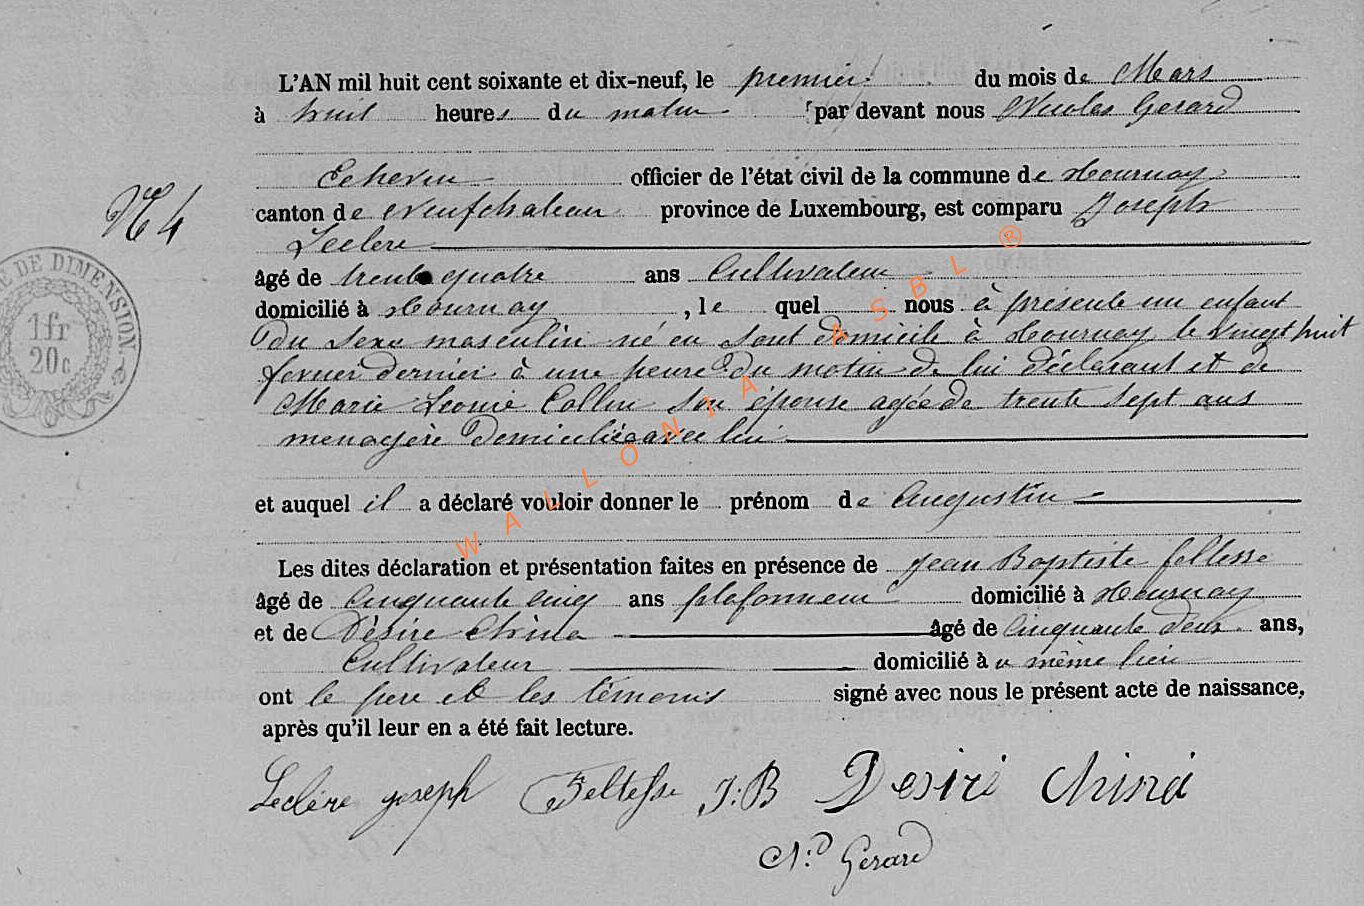 L'AN mil huit cent soixante et dix-neuf, le premier du mois de Mars
à huit heures du matin par devant nous Nicolas Gerard
Echevin officier de l'état civil de la commune de Tournay
N 4
canton de Neufchateau province de Luxembourg, est comparu Joseph
Leclere
âgé de trente quatre ans Cultivateur
domicilié à Tournay , le quel nous à présenté un enfant
du sexe masculin né en sont domicile à Tournay le vingt huit
fevrier dernier à une heure du matin de lui déclarant et de
Marie Leonie Collin son épouse agée de trente sept ans
menagère domiciliée avec lui
et auquel il a déclaré vouloir donner le prénom de Augustin
Les dites déclaration et présentation faites en présence de Jean Baptiste feltesse
âgé de Cinquante cinq ans plafonneur domicilié à Tournay
et de Désiré China âgé de Cinquante deux ans,
Cultivateur domicilié à u même lieu
ont le pere et les témoins signé avec nous le présent acte de naissance,
après qu'il leur en a été fait lecture.
Leclére joseph Feltesse J:B Desiré China
N:d Gerard
E DE DIMENSION
1fr
20c
WALLONIA ASBL ®